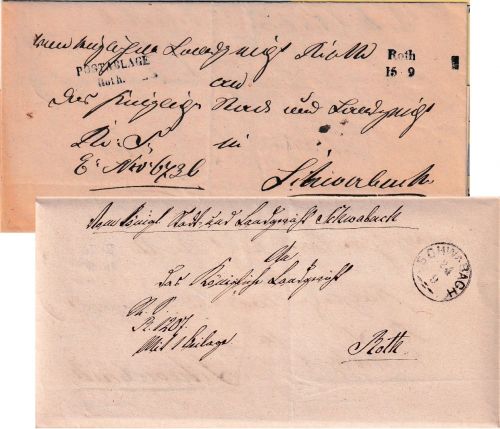 vom königlichen Landgericht Roth
POSTABLAGE
Roth.
Roth
15 9
an
das königliche Stadt und Landgericht
R: S: in
E: Nro: 6736
Schwabach
Vom Königl Stadt- und Landgericht Schwabach
An
das Königliche Landgericht
R. S.
N. 1207.
Mit 1 Beilage
Roth.
SCHWABACH